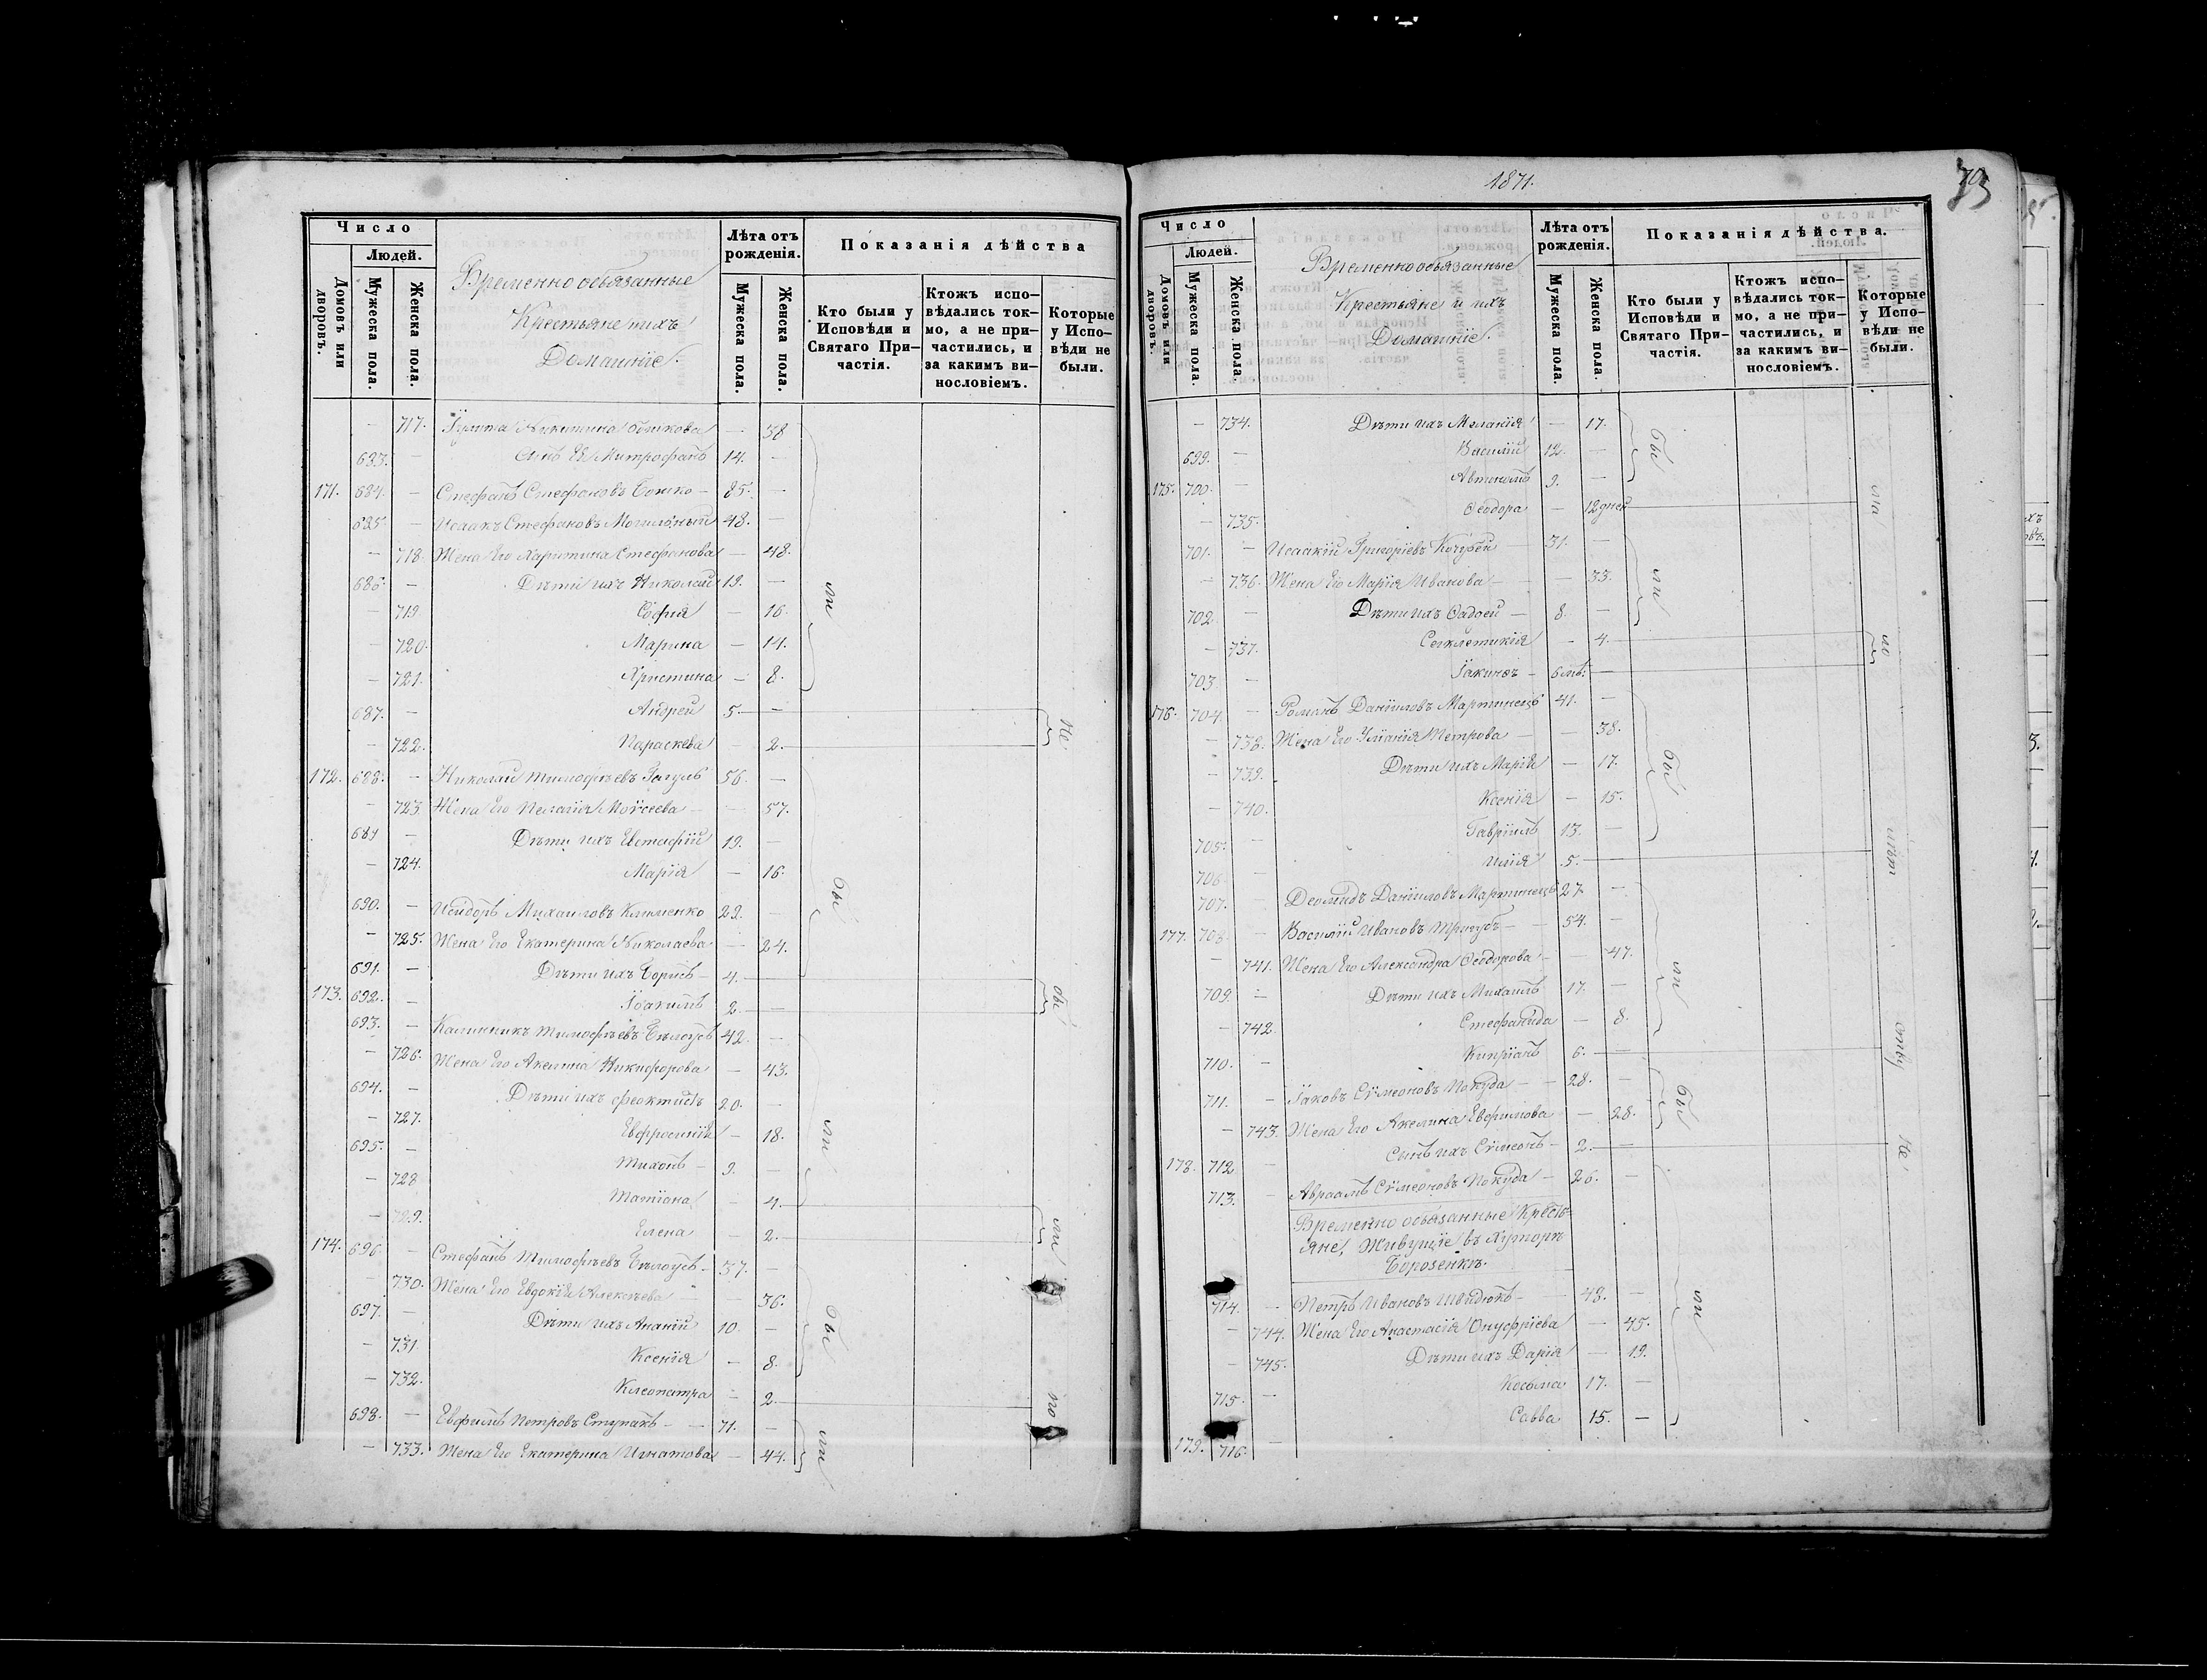 Число
Людей.
Домовъ или дворовъ.
Мужеска пола.
Женска пола.
Временно обязанные
Крестьяне и ихъ
Домашніе.
Лѣта отъ рожденія.
Мужеска пола.
Женска пола.
Показанія дѣйства
Кто были у Исповѣди и Святаго При-частія.
Ктожъ испо-вѣдались ток-мо, а не при-частились, и за какимъ ви-нословіемъ.
Которые у Испо-вѣди не были.
— 717. Никитина — 38
683. — Сынъ Ея Митрофанъ 14. —
171. 684. — Стефанъ Стефановъ Бошко — 85. —
685 — Исаакъ Стефановъ Могильный 48. —
— 718 Жена Его Харитина Стефанова — 48.
686. — Дѣти ихъ Николай 19. —
— 719 Софія — 16.
— 720. Марина — 14.
— 721. Христина — 8.
687. — Андрей 5. —
— 722. Параскева — 2.
172. 688. — Николай Тимофѣевъ 56. —
— 723 Жена Его Пелагія Моѵсеева — 57.
689 — Дѣти ихъ Евстафій 19. —
— 724. Марія — 16.
690. — Исидоръ Михаиловъ Клименко 29. —
— 725. Жена Его Екатерина Николаева — 24.
691. — Дѣти ихъ Борисъ — 4. —
173. 692. — Іоакимъ 2. —
693. — Каллиникъ Тимофѣевъ Бѣлоусъ 42. —
— 726. Жена Его Акелина Никифорова — 43.
694. — Дѣти ихъ Феоктистъ 20. —
— 727. Евфросинія — 18.
695. — Тихонъ — 9. —
— 728 Татіана — 4.
— 729. Елена — 2.
174. 696 — Стефанъ Тимофѣевъ Бѣлоусъ — 37. —
— 730. Жена Его Евдокія Алексѣева — 36.
697. — Дѣти ихъ Ананій 10 —
— 731. Ксенія — 8.
— 732. Клеопатра — 2.
698. — Евфимъ Петровъ Ступакъ — 71. —
— 733. Жена Его Екатерина Игнатова — 44.
бы
ли
бы
ли
бы
ли
не
бы
ли
по
1871.
73
Число
Людей.
Домовъ или дворовъ.
Мужеска пола.
Женска пола.
Временно обязанные
Крестьяне и ихъ
Домашніе.
Лѣта отъ рожденія.
Мужеска пола.
Женска пола.
Показанія дѣйства.
Кто были у Исповѣди и Святаго При-частія.
Ктожъ испо-вѣдались ток-мо, а не при-частились, и за какимъ ви-нословіемъ.
Которые у Испо-вѣди не были.
— 734. Дѣти ихъ Меланія — 17.
699. — Василій 12. —
175. 700. — Автономъ 9. —
— 735. Ѳеодора — 12 дней
701. — Исаакій Григоріевъ Кочубей 31. —
— 736. Жена Его Марія Иванова — 33.
702. — Дѣти ихъ Фаддей — 8. —
— 737. Сегклетикія — 4.
703. — Іакинѳъ — 6 мѣ. —
176. 704. — Романъ Даніиловъ Мартинецъ 41. —
— 738. Жена Его Уліанія Петрова — 38.
— 739. Дѣти ихъ Марія — 17.
— 740. Ксенія — 15.
705. — Гавріилъ 13. —
706. — Илія 5. —
707. — Деомидъ Даніиловъ Мартинецъ 27 —
177. 708. — Василій Ивановъ Тригубъ — 54. —
— 741. Жена Его Александра Ѳеодорова — 47.
709. — Дѣти ихъ Михаилъ 17. —
— 742. Стефанида — 8.
710. — Кипріанъ 6. —
711. — Іаковъ Сѵмеоновъ Покуда — 28. —
— 743. Жена Его Акелина Евфимова — 28.
178. 712 — Сынъ ихъ Сѵмеонъ — 2. —
713. — Авраамъ Сѵмеоновъ Покуда — 26. —
Временно обязанные Кресть-
яне, Живущіе въ Хуторѣ
Борозенкѣ.
714. — Петръ Ивановъ Швидюкъ — 48. —
— 744. Жена Его Анастасія Онуфріева — 45.
— 745. Дѣти ихъ Дарія — 19.
715. — Косьма 17. —
179. 716. — Савва 15. —
бы
ли
бы
ли
бы
ли